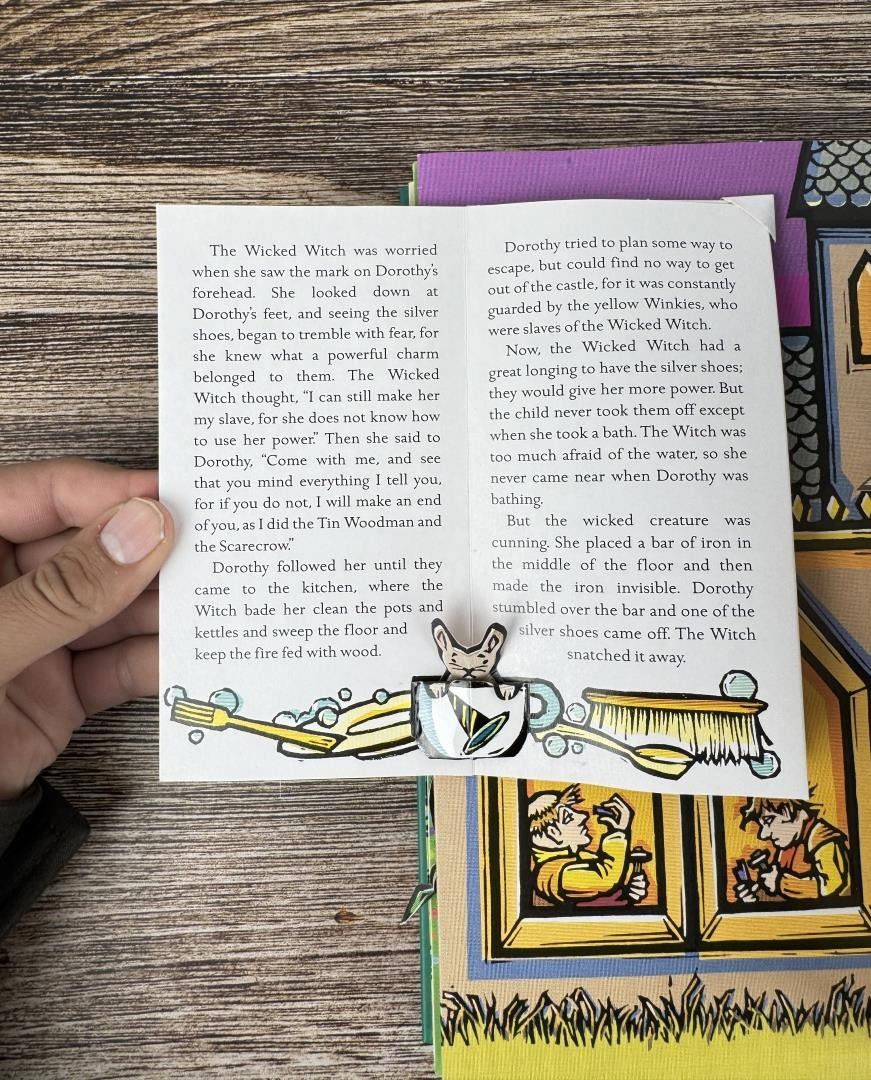 The Wicked Witch was worried
when she saw the mark on Dorothy's
forehead. She looked down at
Dorothy's feet, and seeing the silver
shoes, began to tremble with fear, for
she knew what a powerful charm
belonged to them. The Wicked
Witch thought, “I can still make her
my slave, for she does not know how
to use her power.” Then she said to
Dorothy, “Come with me, and see
that you mind everything I tell you,
for if you do not, I will make an end
of you, as I did the Tin Woodman and
the Scarecrow.”
Dorothy followed her until they
came to the kitchen, where the
Witch bade her clean the pots and
kettles and sweep the floor and
keep the fire fed with wood.
Dorothy tried to plan some way to
escape, but could find no way to get
out of the castle, for it was constantly
guarded by the yellow Winkies, who
were slaves of the Wicked Witch.
Now, the Wicked Witch had a
great longing to have the silver shoes;
they would give her more power. But
the child never took them off except
when she took a bath. The Witch was
too much afraid of the water, so she
never came near when Dorothy was
bathing.
But the wicked creature was
cunning. She placed a bar of iron in
the middle of the floor and then
made the iron invisible. Dorothy
stumbled over the bar and one of the
silver shoes came off. The Witch
snatched it away.